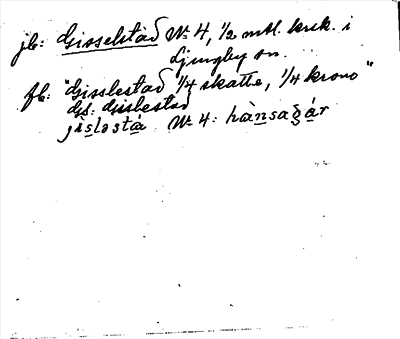 jb: Gisselstad Nr 4, 1/2 mtl. krsk. i
Ljungby sn.
fb: "Gisslestad 1/4 skatte, 1/4 krono"
Gs: Gislestad
jìsləstà Nr 4: hànsagár